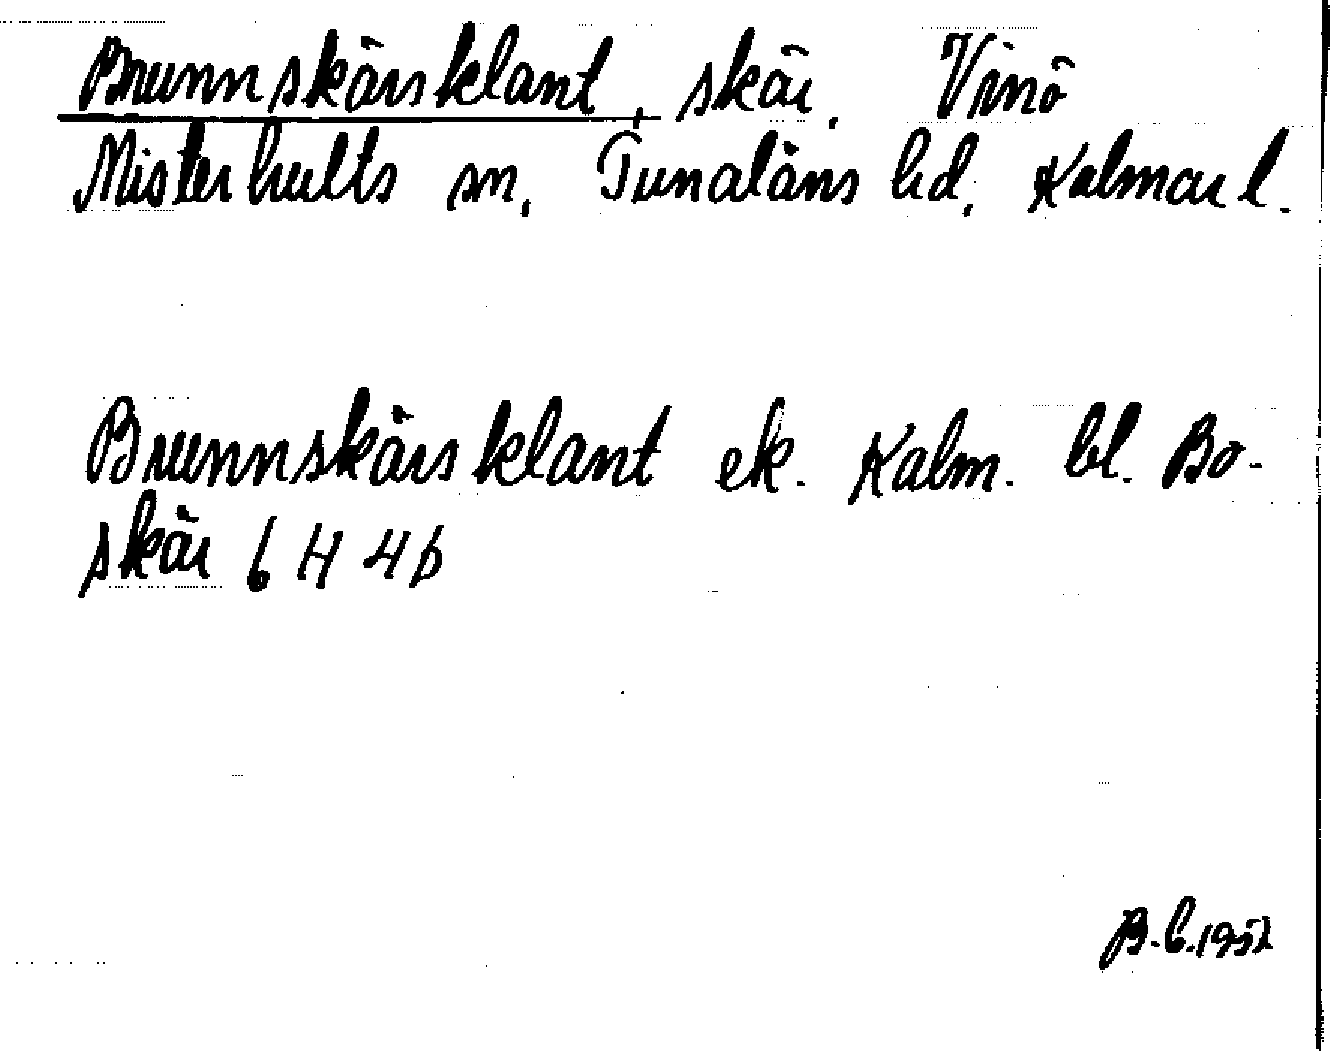 Brunnskärsklant, skär. Vinö
Misterhults sn, Tunaläns hd, Kalmar l.
Brunnskärsklant ek. Kalm. bl. Bo-
skär 6 H 4 b
B. b. 1952